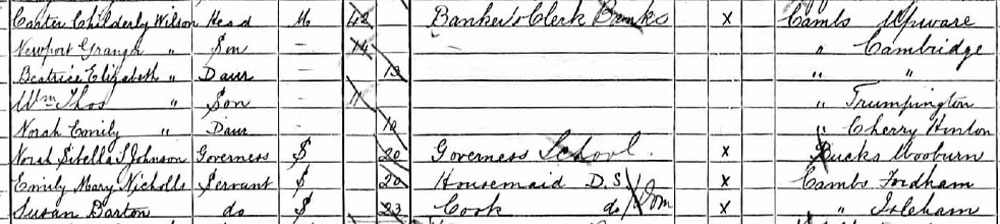 Carter Childerly Wilson Head M 42 Banker's Clerk Banks X Cambs Upware
Newport Granger " Son - 14 " Cambridge
Beatrice Elizabeth " Daur - 13 " "
Wm Thos " Son - 11 " Trumpington
Norah Emily " Daur - 10 " Cherry Hinton
Norah Sibella S Johnson Governess S 20 Governess School. X Bucks Wooburn
Emily Mary Nicholls Servant S 20 Housemaid D.S X Cambs Fordham
Susan Barton do S 23 Cook do /Dom X " Isleham